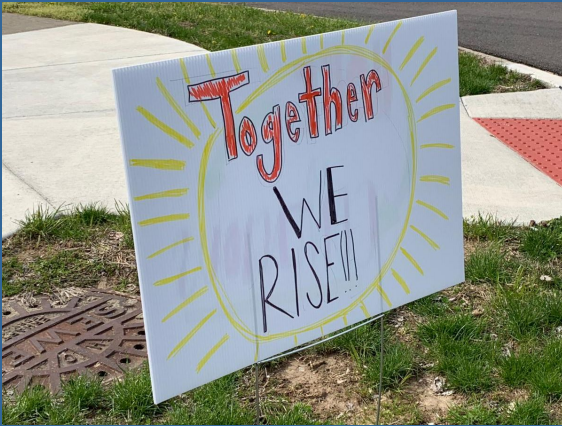 Together
WE
RISE!!!